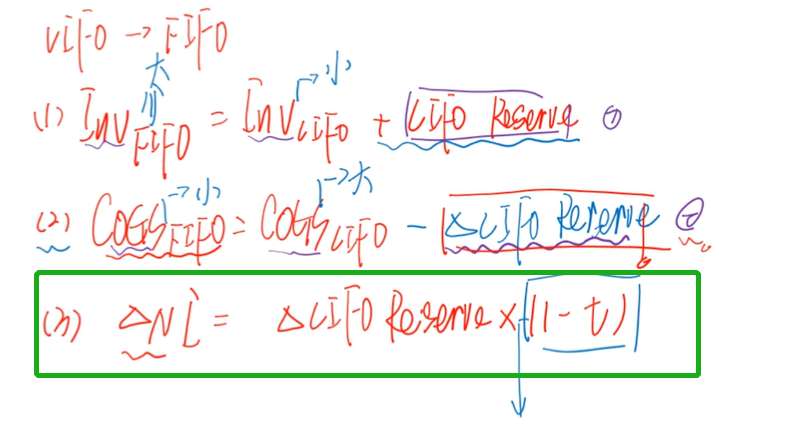 LIFO → FIFO
大 → 小
(1) Inv FIFO = Inv LIFO + LIFO Reserve ①
→ 小 → 大
(2) COGS FIFO = COGS LIFO - △LIFO Reserve ②
(3) △NI = △LIFO Reserve × (1-t)